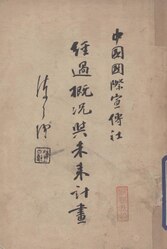 中國國際宣傳社
經過概況與未來計畫